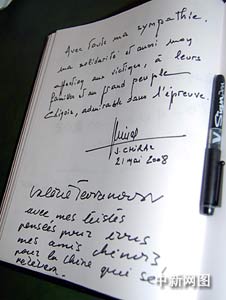 Avec toute ma sympathie,
ma solidarité et aussi mon
affection aux victimes, à leurs
familles et au grand peuple
Chinois, admirable dans l'épreuve.
J. CHIRAC
21 mai 2008
avec mes tristes
pensées pour vous
mes amis chinois
pour la Chine qui se
中新网图